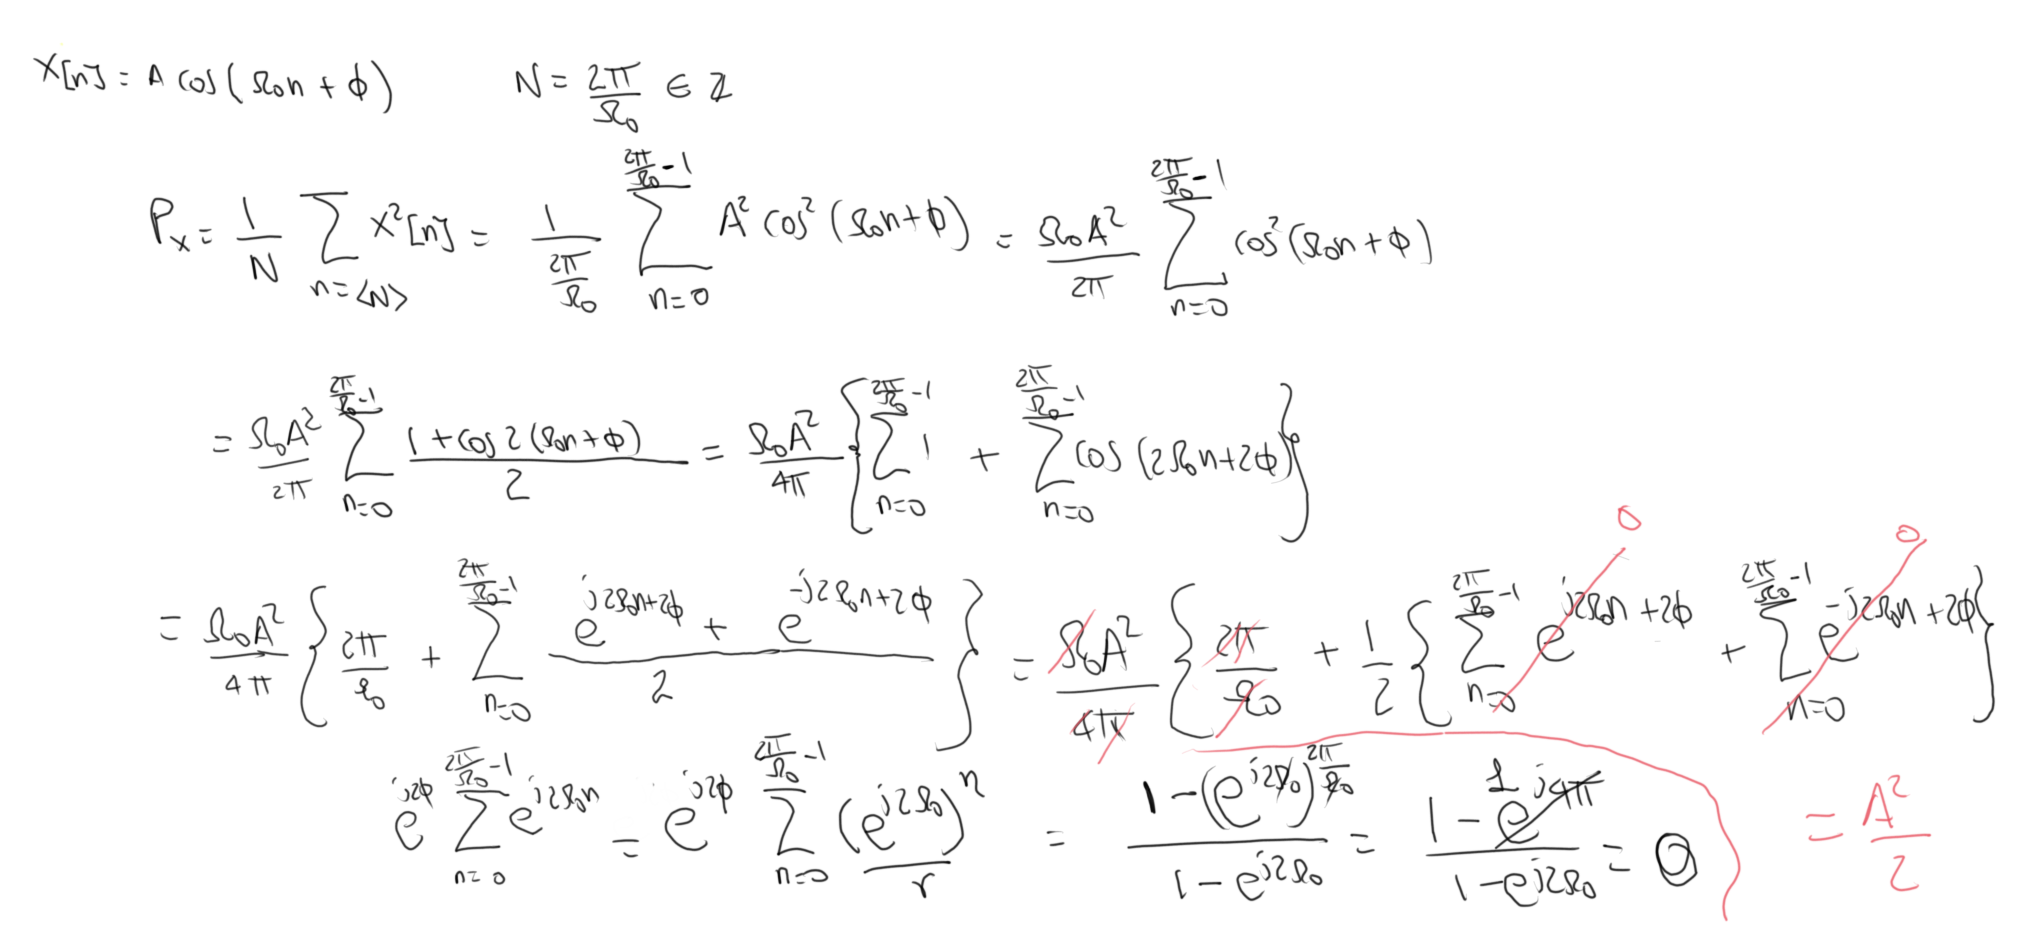 x[n] = A cos(Ω₀n + ϕ)    N = 2π/Ω₀ ∈ ℤ
Pₓ = 1/N ∑_{n=<N>} x²[n] = 1/(2π/Ω₀) ∑_{n=0}^{2π/Ω₀ - 1} A² cos²(Ω₀n + ϕ) = Ω₀A²/2π ∑_{n=0}^{2π/Ω₀ - 1} cos²(Ω₀n + ϕ)
= Ω₀A²/2π ∑_{n=0}^{2π/Ω₀ - 1} (1 + cos 2(Ω₀n + ϕ))/2 = Ω₀A²/4π { ∑_{n=0}^{2π/Ω₀ - 1} 1 + ∑_{n=0}^{2π/Ω₀ - 1} cos(2Ω₀n + 2ϕ) }
= Ω₀A²/4π { 2π/Ω₀ + ∑_{n=0}^{2π/Ω₀ - 1} (e^{j2Ω₀n + 2ϕ} + e^{-j2Ω₀n + 2ϕ})/2 } = Ω₀A²/4π { 2π/Ω₀ + 1/2 { ∑_{n=0}^{2π/Ω₀ - 1} e^{j2Ω₀n + 2ϕ} 0 + ∑_{n=0}^{2π/Ω₀ - 1} e^{-j2Ω₀n + 2ϕ} 0 }
e^{j2ϕ} ∑_{n=0}^{2π/Ω₀ - 1} e^{j2Ω₀n} = e^{j2ϕ} ∑_{n=0}^{2π/Ω₀ - 1} (e^{j2Ω₀})^n r = (1 - (e^{j2Ω₀})^{2π/Ω₀})/(1 - e^{j2Ω₀}) = (1 - e^{j4π} 1)/(1 - e^{j2Ω₀}) = 0    = A²/2